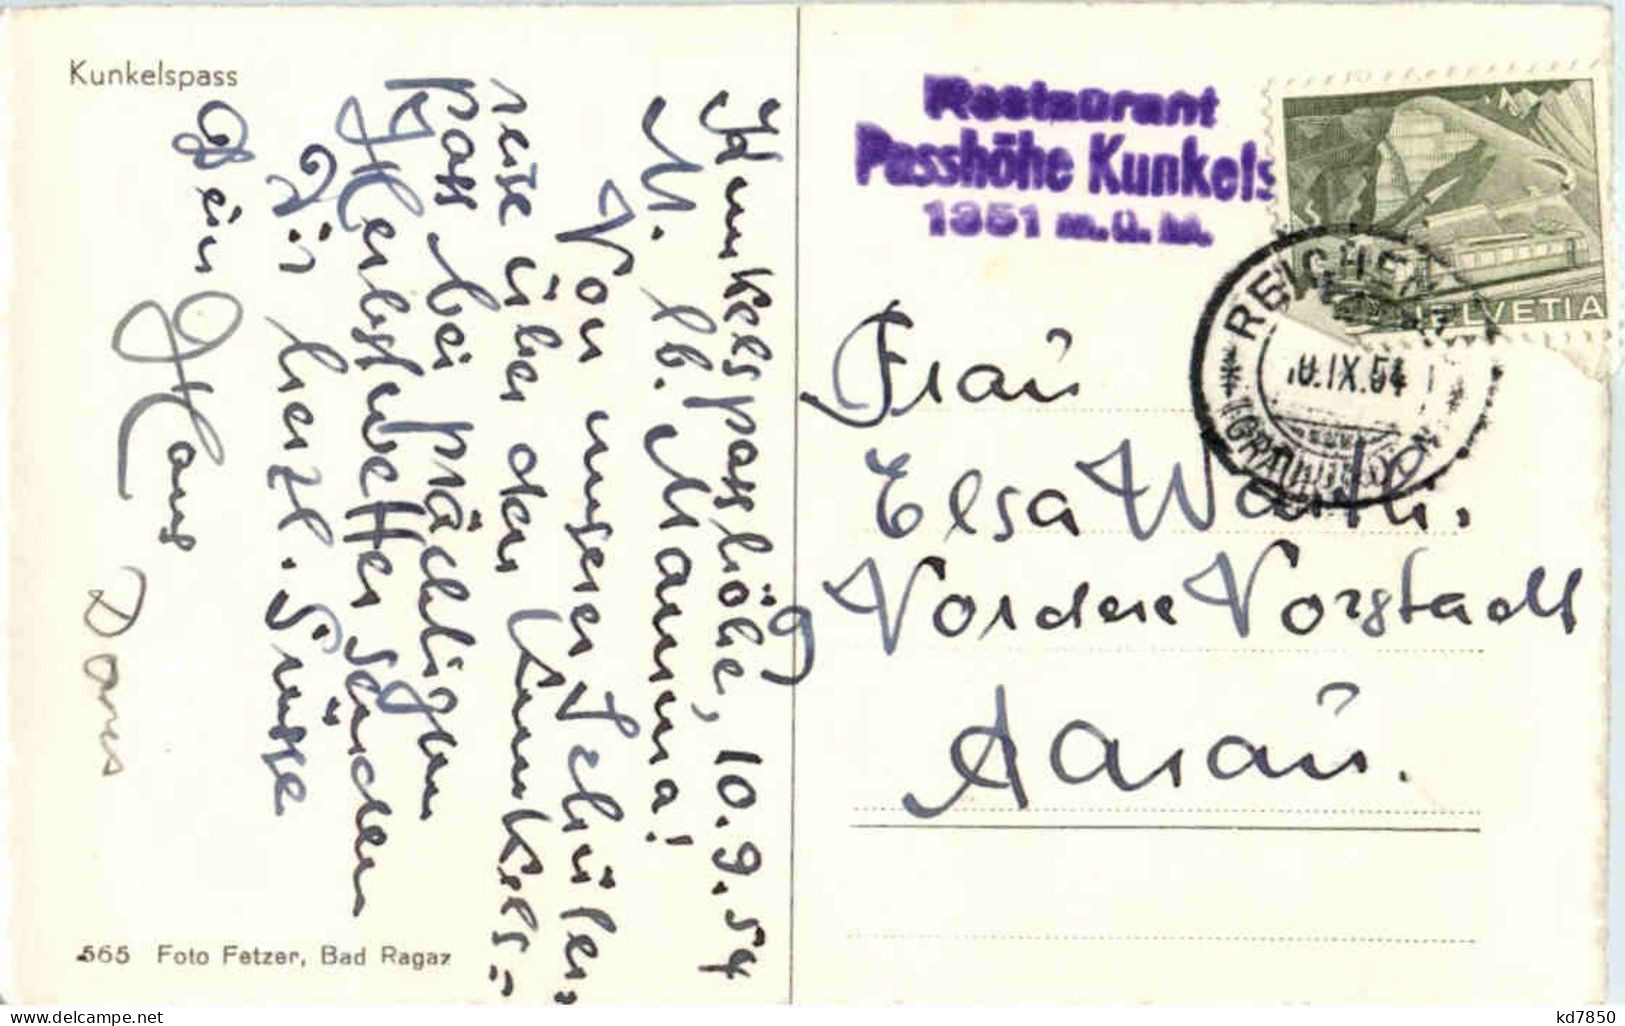 Kunkelspass
Kunkelspasshöhe, 10.9.54
M. lb. Mamma!
Von unserer Schüler-
reise über den Kunkels-
pass bei prächtigem
Herbstwetter senden
Dir herzl. Grüsse
Dein Hans
565 Foto Fetzer, Bad Ragaz
Restaurant
Passhöhe Kunkels
1351 m.ü.M.
HELVETIA
REICHEN
10.IX.54
Frau
Elsa
Vordere Vorstadt
Aarau.
www.delcampe.net
kd7850